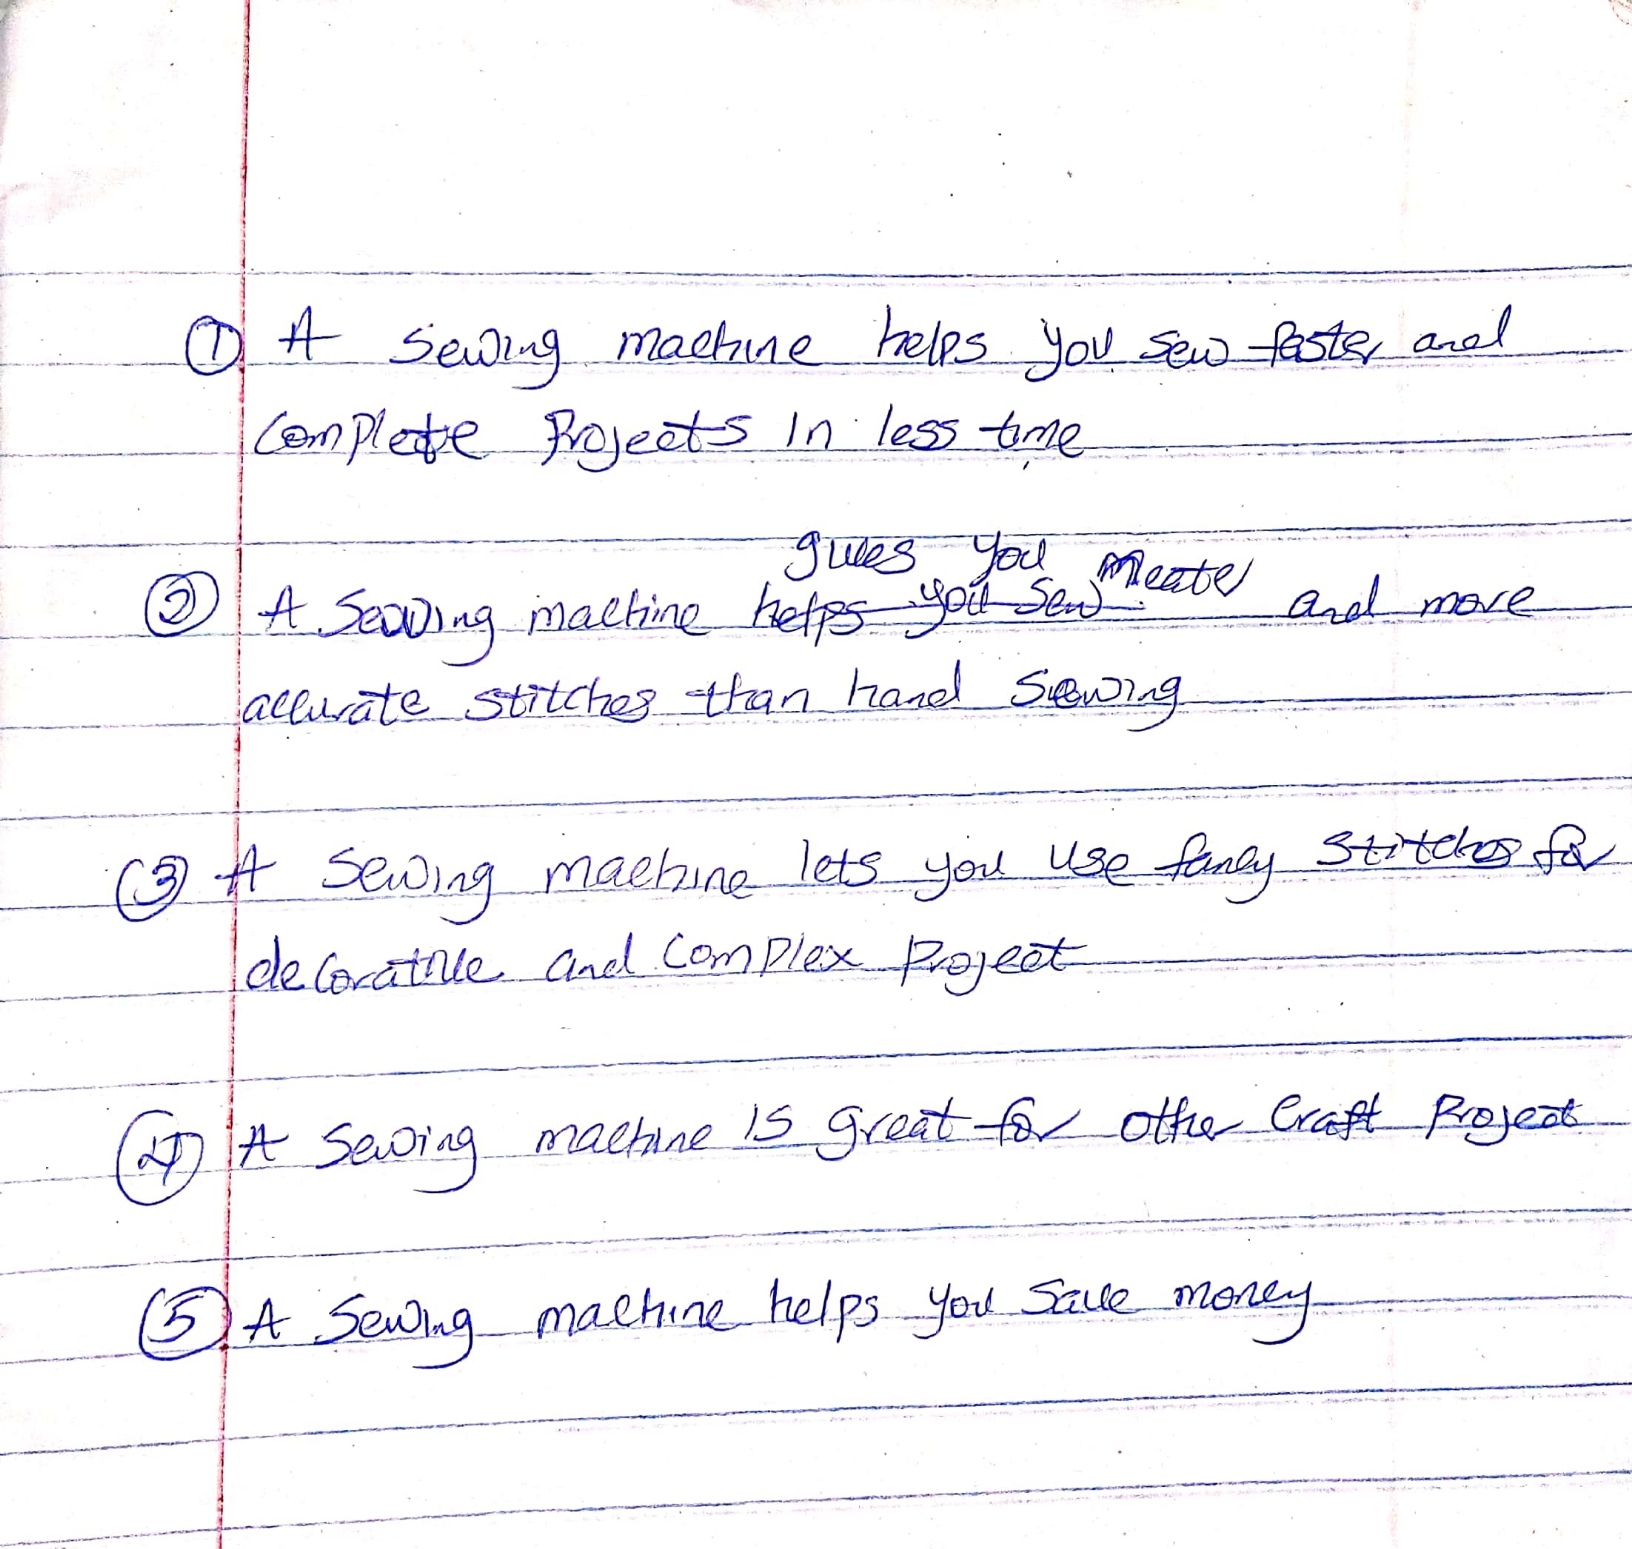 ① A sewing machine helps you sew faster and
Complete Projects in less time
gives you neater
② A Sewing machine helps you sew and more
accurate stitches than hand Sewing
③ A Sewing machine lets you use fancy stitches for
decorative and Complex Project
④ A Sewing machine is great for other Craft Project
⑤ A Sewing machine helps you save money